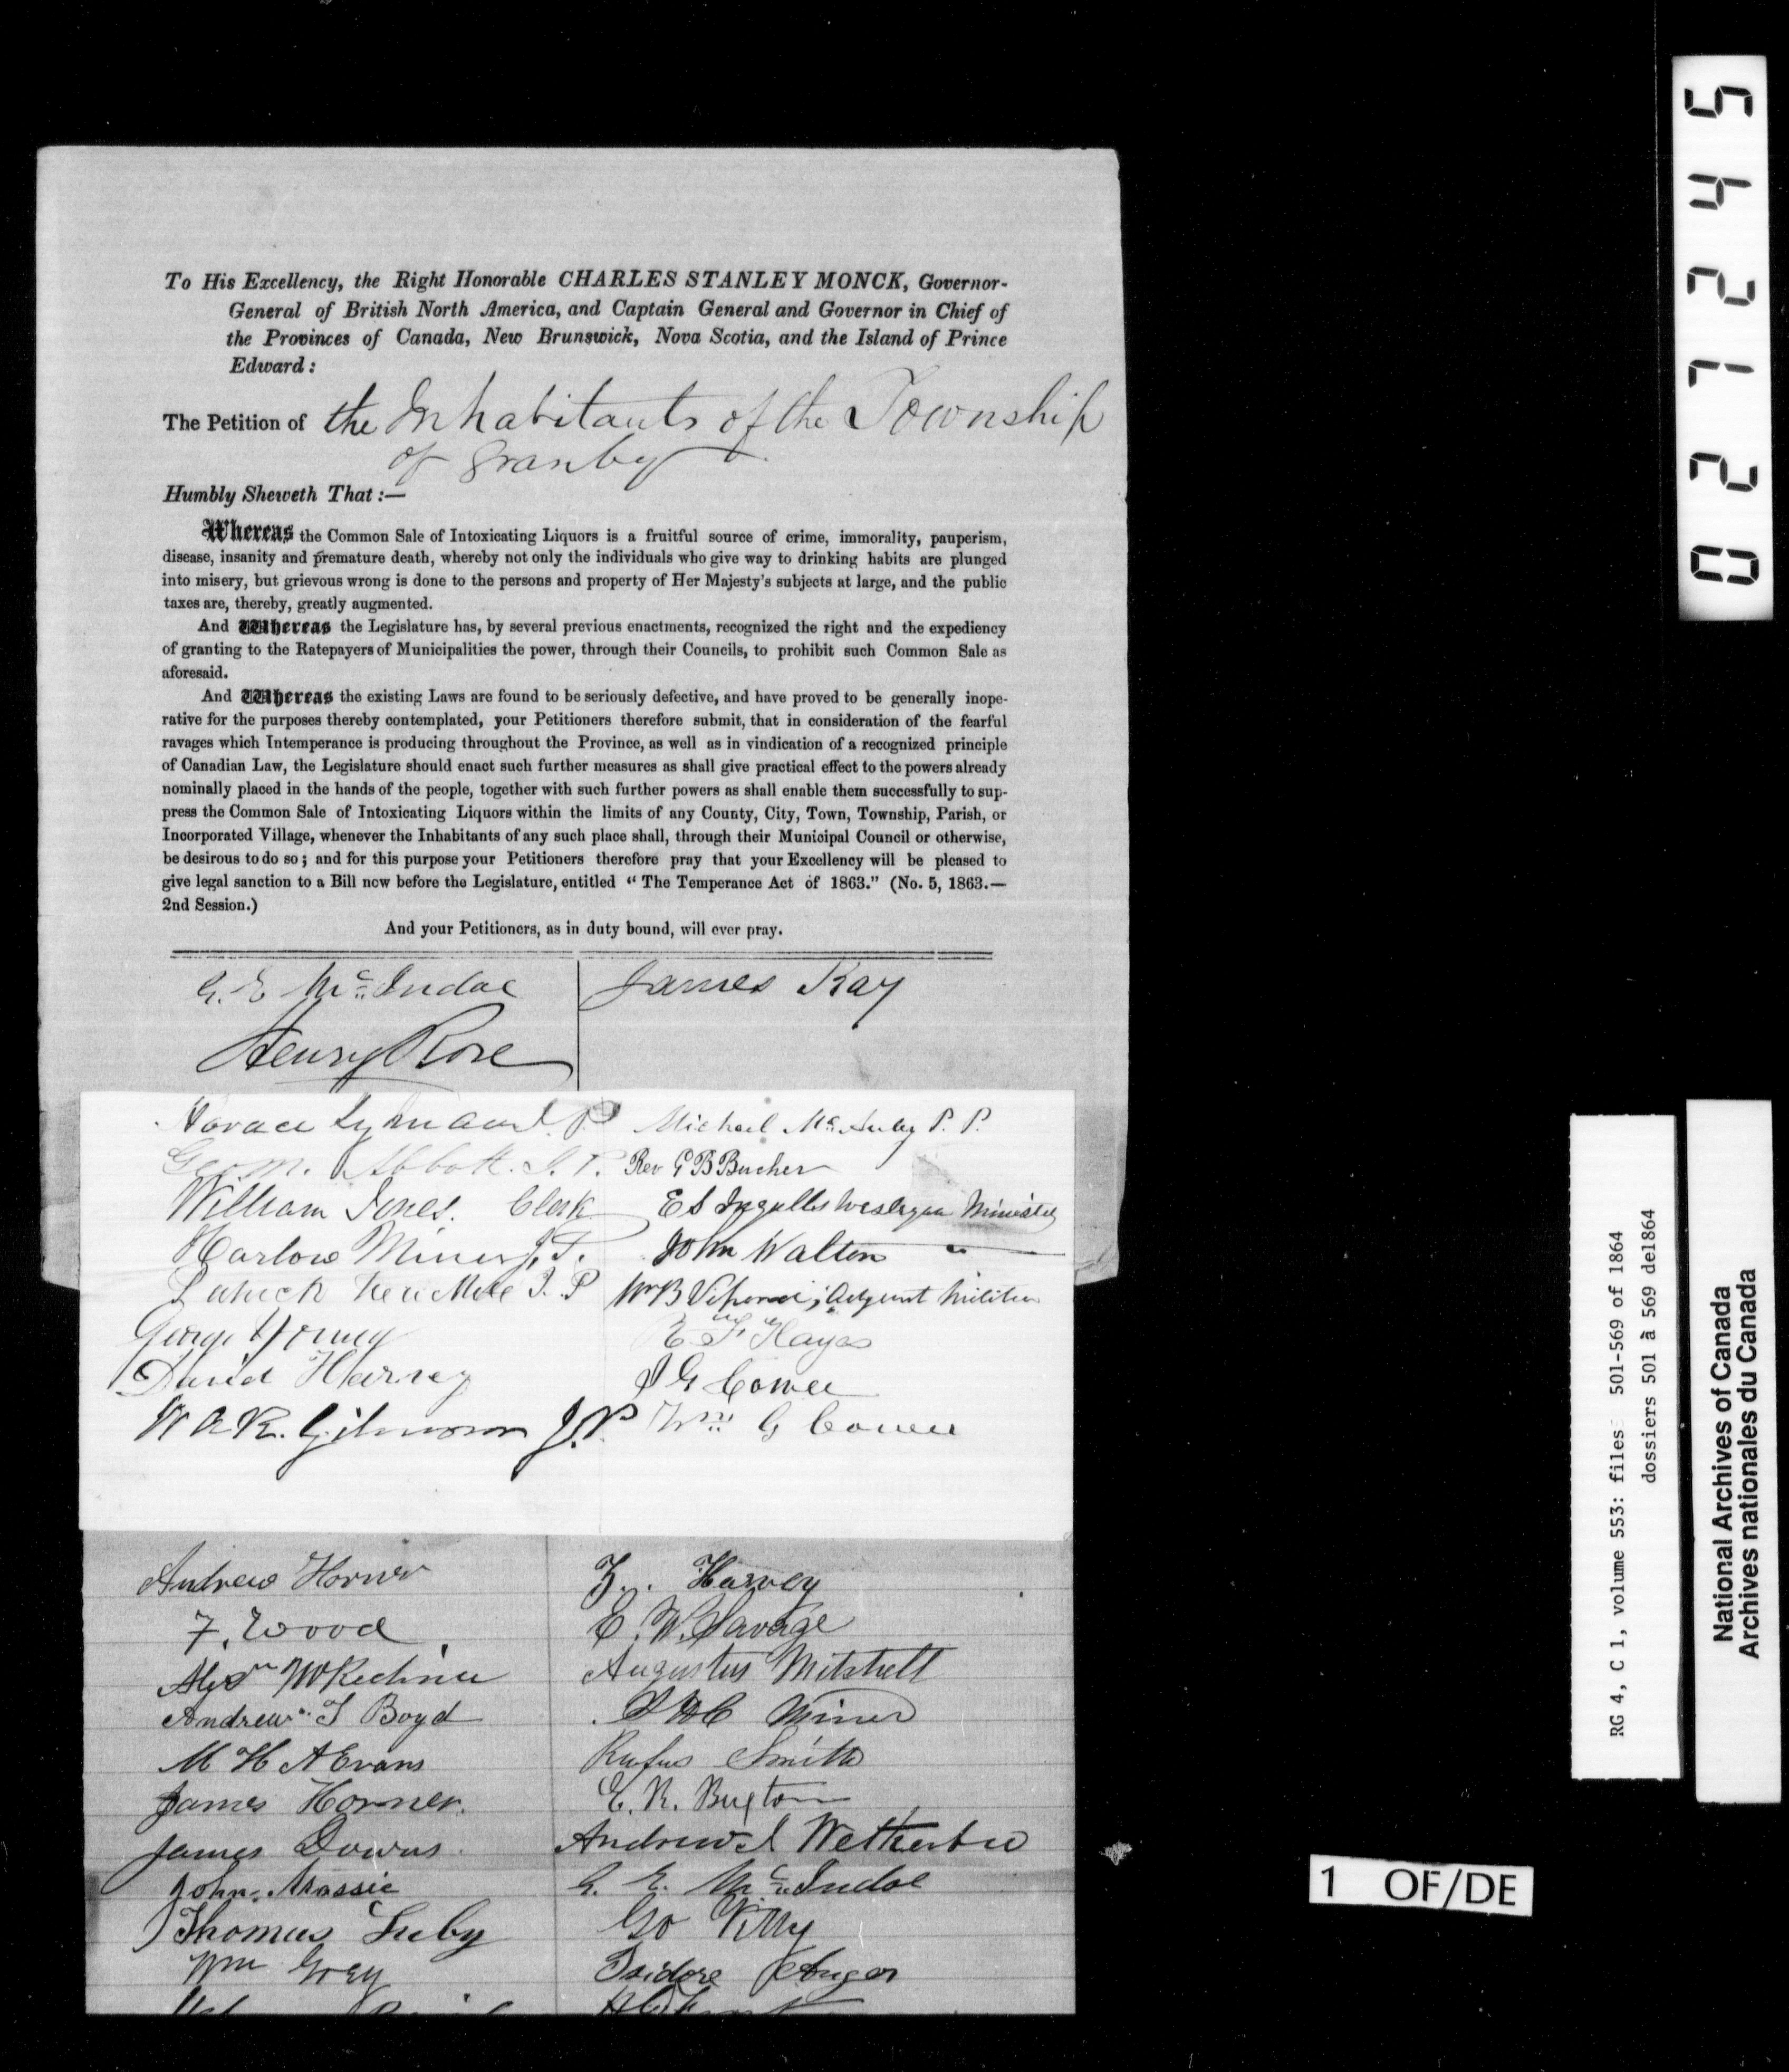 To His Excellency, the Right Honorable CHARLES STANLEY MONCK, Governor-
General of British North America, and Captain General and Governor in Chief of
the Provinces of Canada, New Brunswick, Nova Scotia, and the Island of Prince
Edward :
The Petition of the Inhabitants of the Township
of Granby
Humbly Sheweth That :—
Whereas the Common Sale of Intoxicating Liquors is a fruitful source of crime, immorality, pauperism,
disease, insanity and premature death, whereby not only the individuals who give way to drinking habits are plunged
into misery, but grievous wrong is done to the persons and property of Her Majesty's subjects at large, and the public
taxes are, thereby, greatly augmented.
And Whereas the Legislature has, by several previous enactments, recognized the right and the expediency
of granting to the Ratepayers of Municipalities the power, through their Councils, to prohibit such Common Sale as
aforesaid.
And Whereas the existing Laws are found to be seriously defective, and have proved to be generally inope-
rative for the purposes thereby contemplated, your Petitioners therefore submit, that in consideration of the fearful
ravages which Intemperance is producing throughout the Province, as well as in vindication of a recognized principle
of Canadian Law, the Legislature should enact such further measures as shall give practical effect to the powers already
nominally placed in the hands of the people, together with such further powers as shall enable them successfully to sup-
press the Common Sale of Intoxicating Liquors within the limits of any County, City, Town, Township, Parish, or
Incorporated Village, whenever the Inhabitants of any such place shall, through their Municipal Council or otherwise,
be desirous to do so ; and for this purpose your Petitioners therefore pray that your Excellency will be pleased to
give legal sanction to a Bill now before the Legislature, entitled “ The Temperance Act of 1863.” (No. 5, 1863.—
2nd Session.)
And your Petitioners, as in duty bound, will ever pray.
G. E. McIndoe
Henry Rose
James Kay
Horace Lyman J.P
Geo. M. Abbott. J. P.
William Jones. Clerk
Harlow Miner J.P.
J. P
George Young
David Harvey
W A R. Gilmour J.P
Michael P. P.
Rev G B Bucher
E S Ingalls Wesleyan Minister
John Walton "
Wm B Militia
E. F. Hayes
J G Cowee
Wm G Cowee
Andrew Horner
F. Wood
Alexr
Andrew T Boyd
M H A Evans
James Horner.
James Downs
John Massie
Thomas Luby
Wm Grey
Z. Harvey
E. W. Savage
Augustus Mitchell
Miner
Rufus Smith
E. R. Buxton
Andrew J Wetherbee
G. E. McIndoe
Geo Vittly
Isidore Auger
0 2 7 2 4 5
RG 4, C 1, volume 553: files 501-569 of 1864
dossiers 501 à 569 de1864
National Archives of Canada
Archives nationales du Canada
1 OF/DE